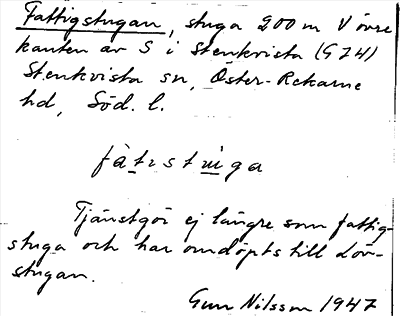 Fattigstugan, stuga 200 m V övre
kanten av S i Stenkvista (G 74)
Stenkvista sn, Öster-Rekarne
hd, Söd. l.
fàtıstuga
Tjänstgör ej längre som fattig-
stuga och har omdöpts till Löv-
stugan.
Gun Nilsson 1947